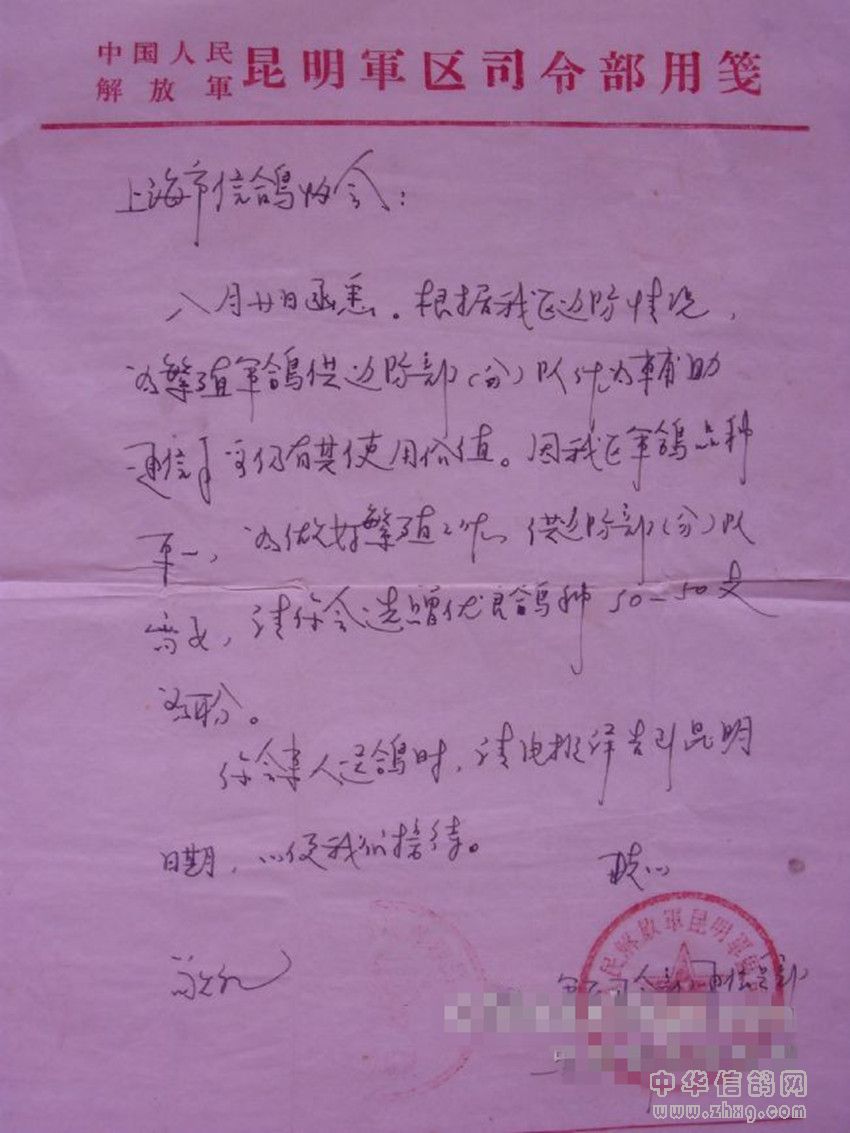 中国人民
解放軍 昆明軍区司令部用笺
上海市信鸽协会：
八月廿日函悉。根据我区边防情况，
为繁殖军鸽供边防部（分）队作为辅助
通信 仍有其使用价值。因我区军鸽品种
单一，为做好繁殖工作，供边防部（分）队
请你会选赠优良鸽种
为盼。
你会来人送鸽时，请电报详告到昆明
日期，以便我们接待。
敬礼
民解放軍昆明軍
军区司令部通信兵部
中华信鸽网
www.zhxg.com